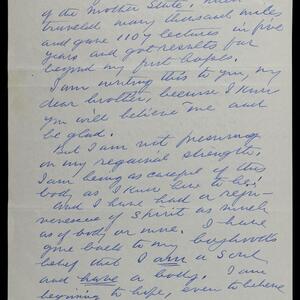 of the Mother State.
traveled many thousand miles
and gave 1104 lectures in five
years and got results far
beyond my first hopes.
I am writing this to you, my
dear brother, because I know
you will believe me and
be glad.
But I am not presuming
on my regained strength,
I am being as careful of the
body as I know how to be;
And I have had a
of spirit as surely
as of body or mine. I have
back to my boyhood's
belief that I am a soul
and have a body. I am
beginning to hope, even to believe